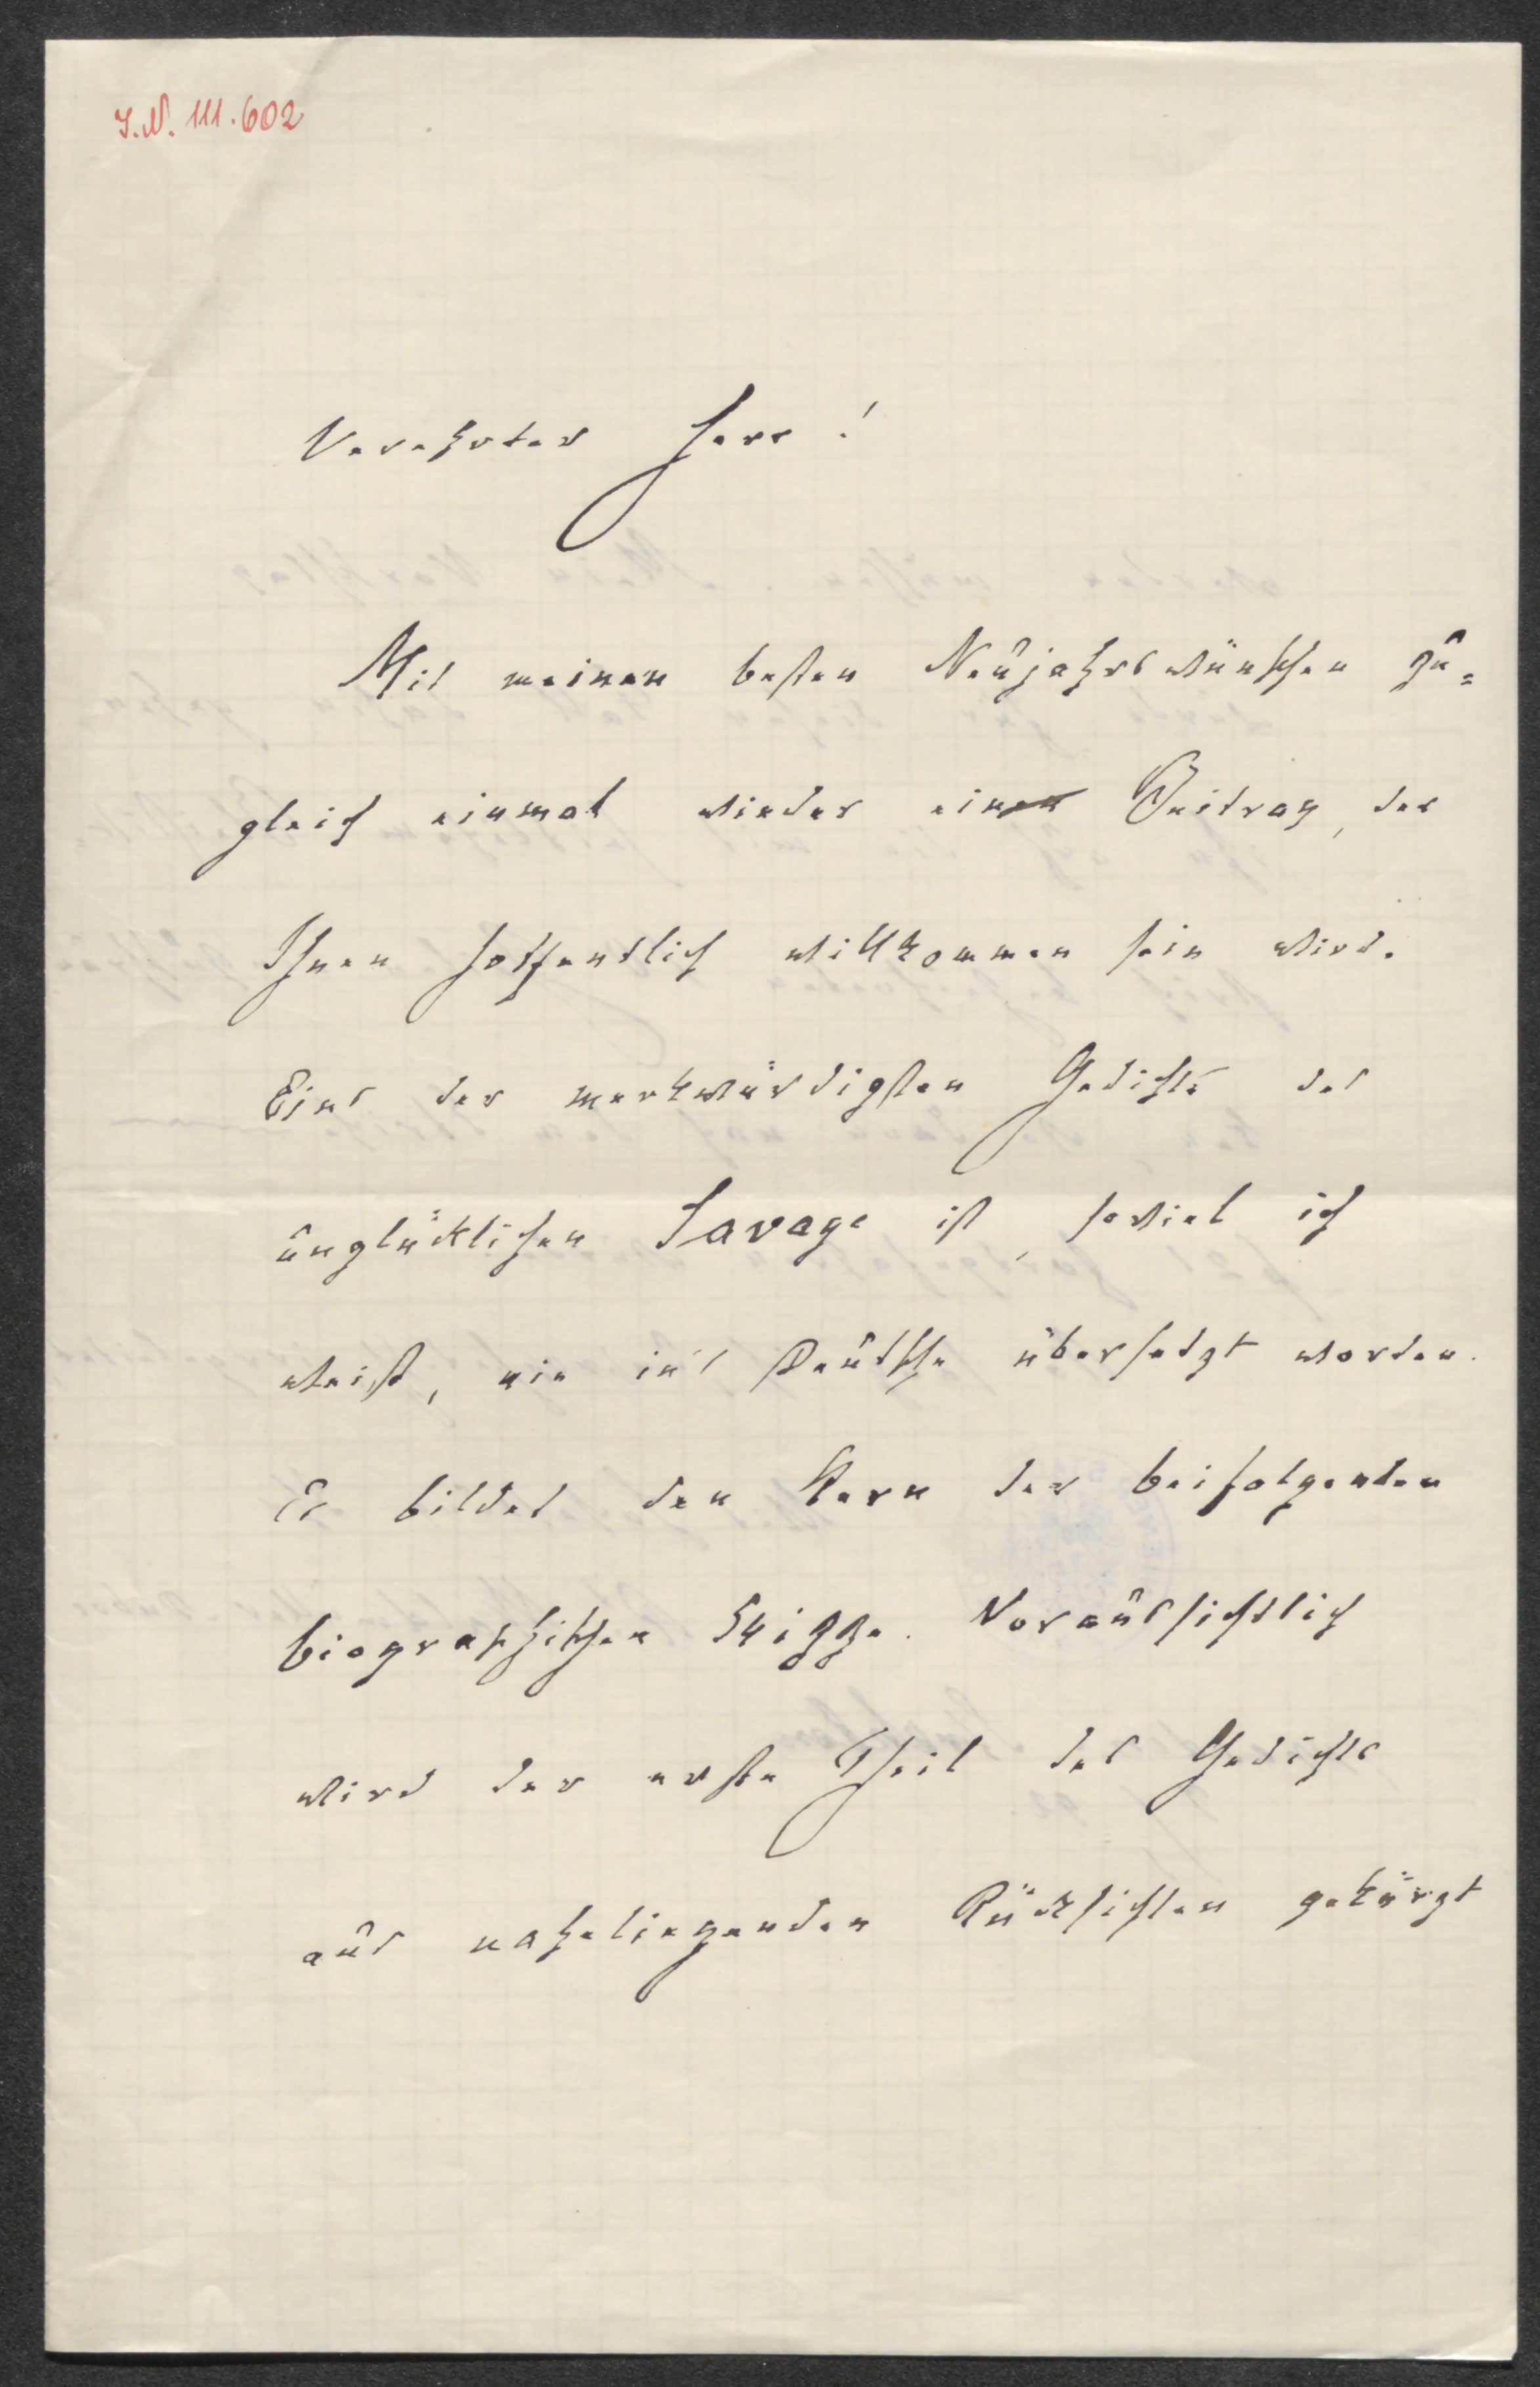 J.N. 111.602
Verehrter Herr!
Mit meinen besten Neujahrswünschen zu=
gleich einmal wieder einen Beitrag, der
Ihnen hoffentlich willkommen sein wird.
Eins der merkwürdigsten Gedichte des
unglücklichen Savage ist, soviel ich
weiß, nie in's Deutsche übersetzt worden.
Es bildet den Kern der beifolgenden
biographischen Skizze. Voraussichtlich
wird der erste Theil des Gedichts
aus naheliegenden Rücksichten gekürzt